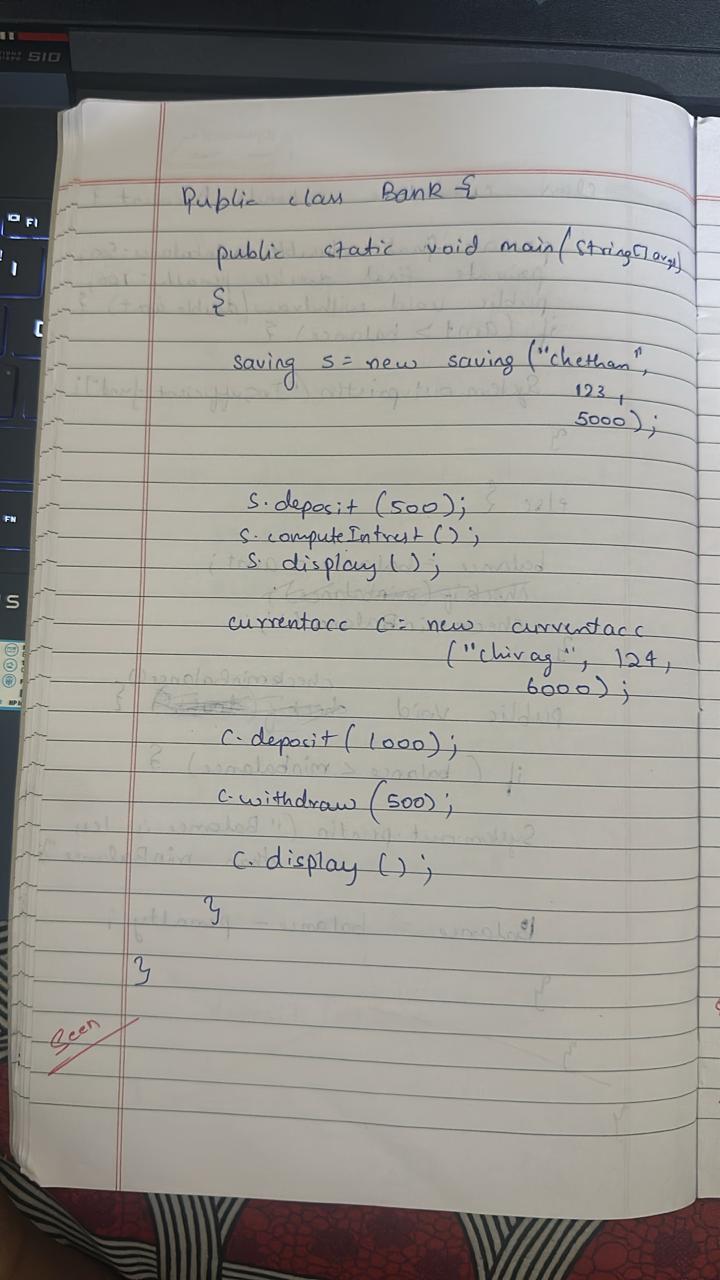 SID
F1
FN
S
Public class Bank {
public static void main(String[] args)
{
saving s = new saving ("chethan",
123,
5000);
s.deposit (500);
s.computeIntrest();
s.display();
currentacc c = new currentacc
("chirag", 124,
6000);
c.deposit(1000);
c.withdraw (500);
c.display();
}
}
Seen